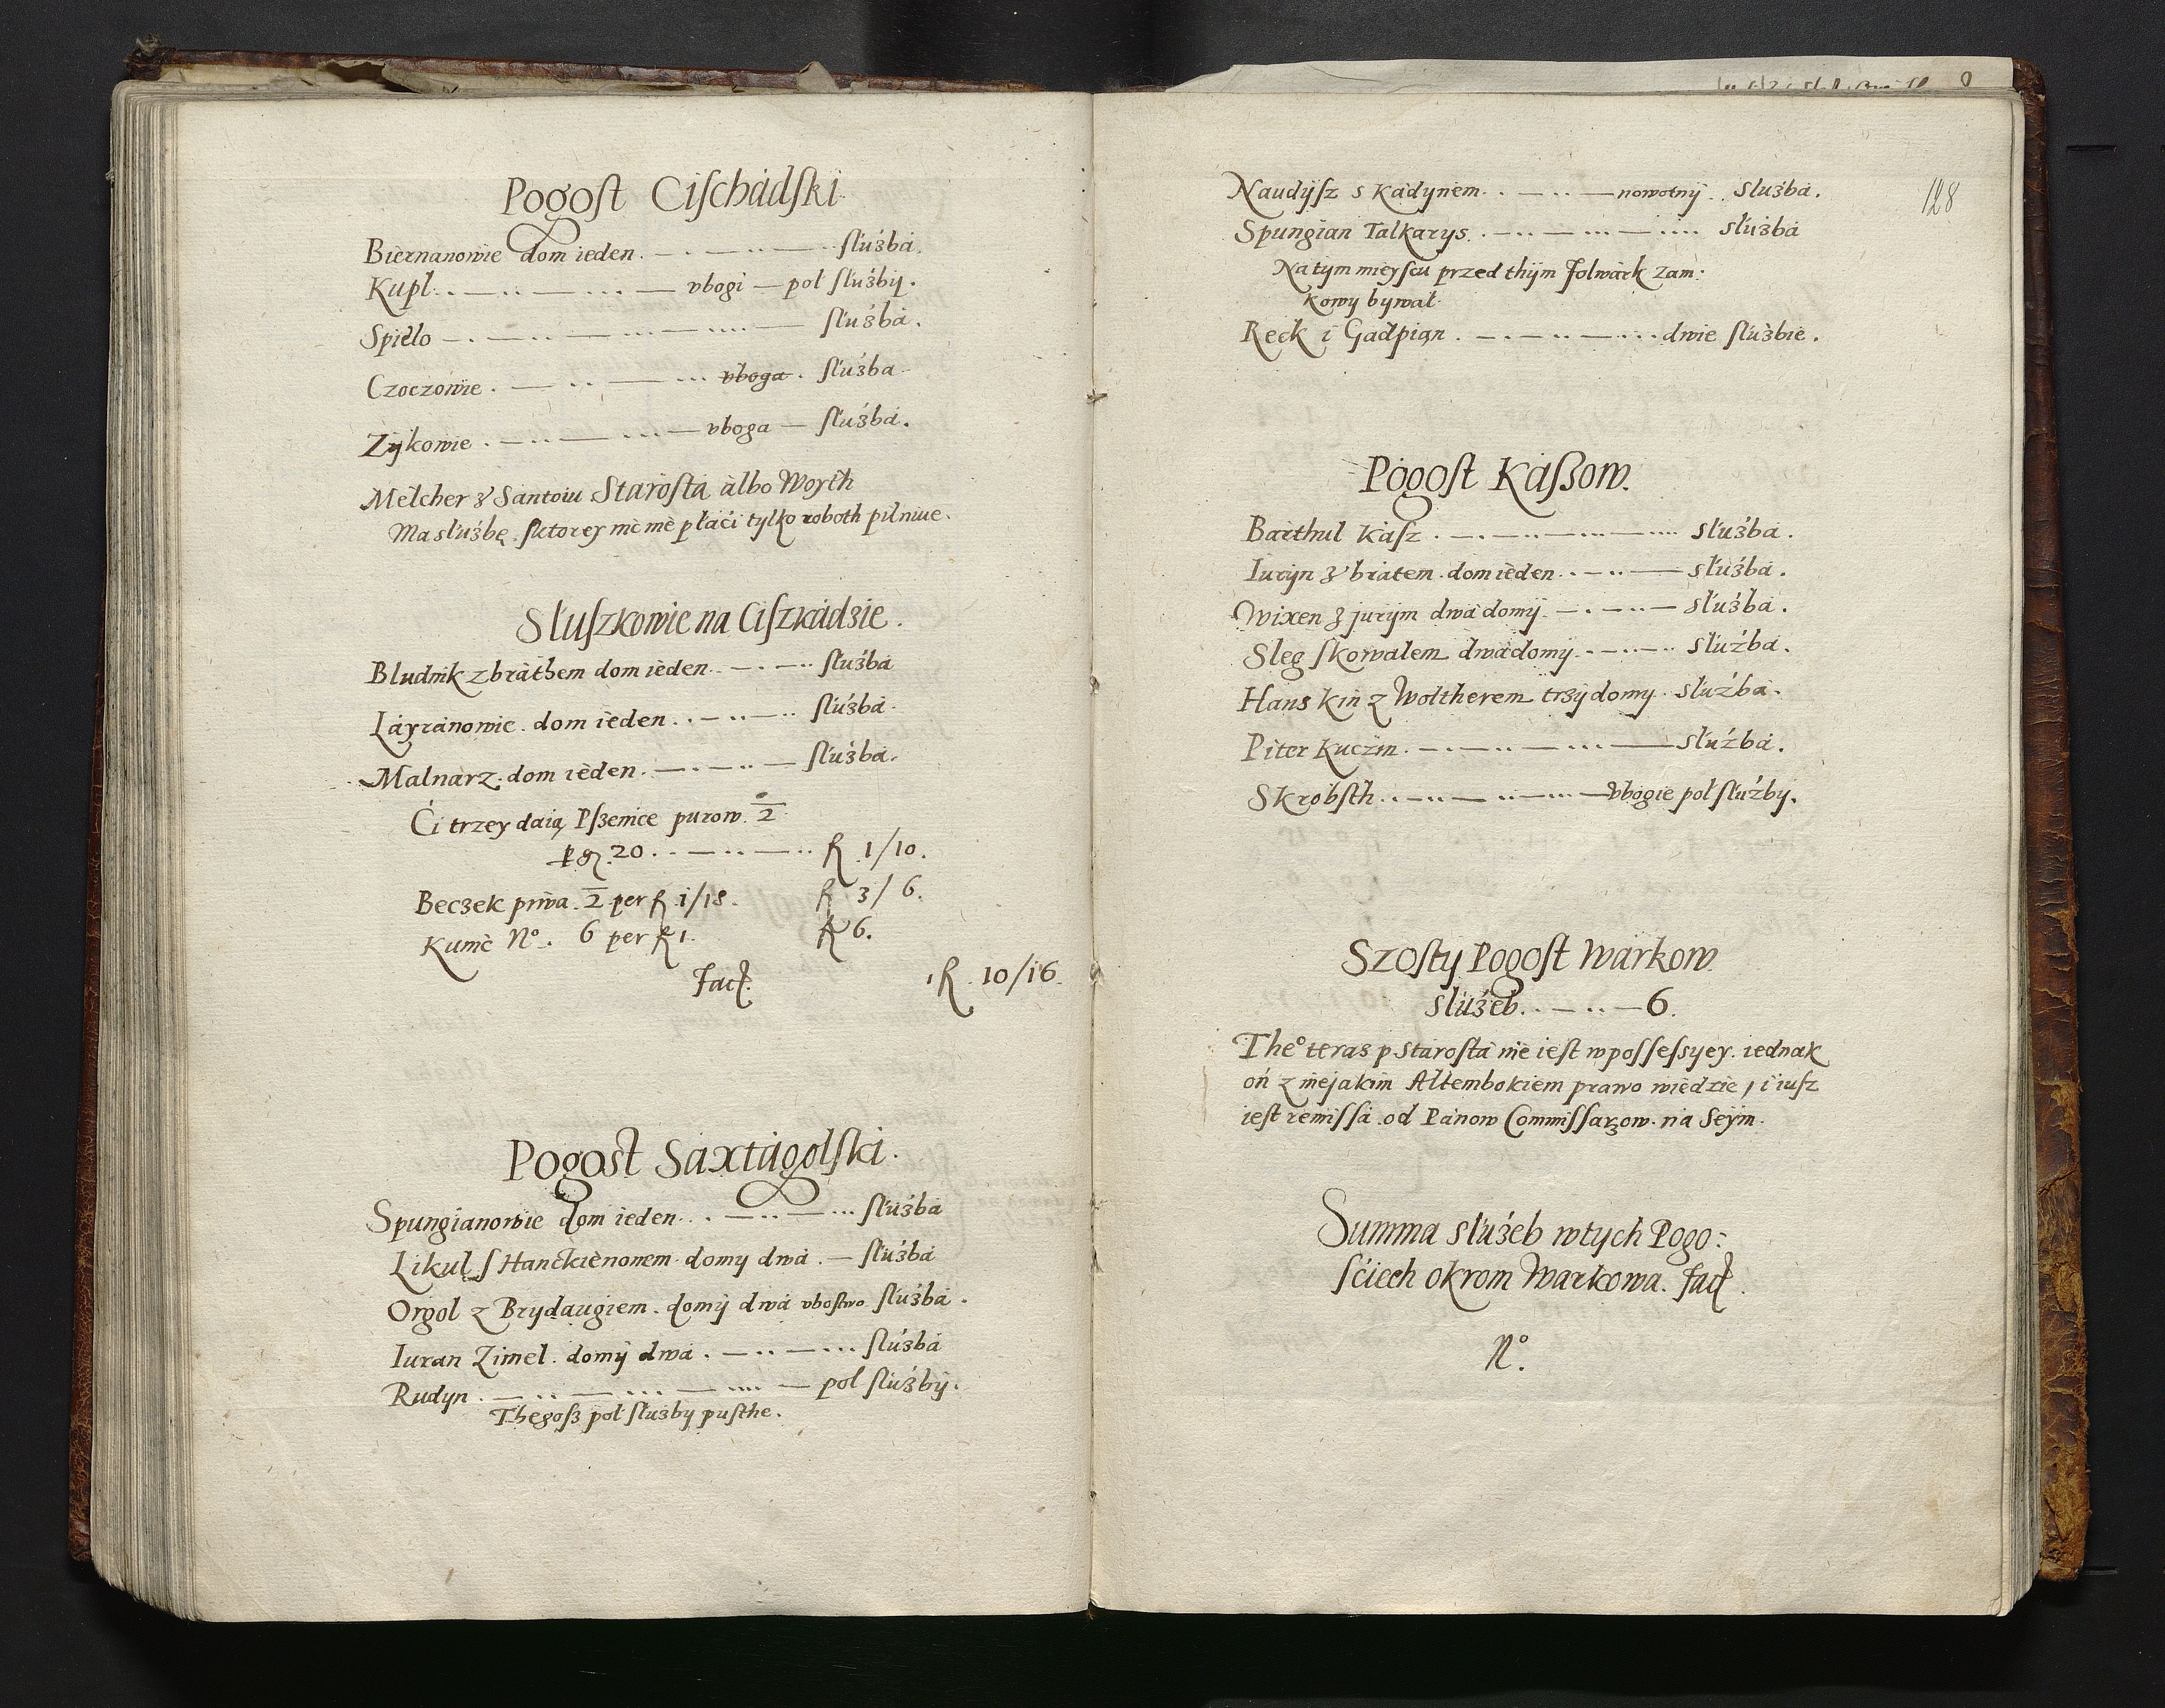 Pogost Cischadski
Biernanowie dom ieden służba.
Kupl vbogi pol służby.
Spielo służba.
Czoczowie vboga służba
Zykowie vboga służba.
Melcher z Santoiu Starosta albo Woyth
Ma służbę, ktorey nie płaci tylko roboth pilnuie.
Słuszkowie na Ciszkadzie.
Bludnik z brathem dom ieden służba
Layranowie dom ieden służba
Malnarz dom ieden służba.
Ci trzey daią Pszenice purow 2
20 1/10.
Beczek piwa 2 per 1/18. 3/6.
Kunie No. 6 per 1. 6.
fact. 10/16.
Pogost Saxtagolski.
Spungianowie dom ieden służba
Likul s Hanckienonem domy dwa służba
Orgol z Brydaugiem domy dwa vbostwo służba.
Iuran Zimel domy dwa służba
Rudyn pol służby.
Thegosz pol służby pusthe.
128
Naudysz s Kadynem nowotny służba.
Spungian Talkarys służba
Na tym mieyscu przed thym folwark zam:
kowy bywał
Reck i Gadpian dwie służbie.
Pogost Kaszow.
Barthul Kasz służba.
Iuryn z bratem dom ieden służba.
Wixen z jurym dwa domy służba.
Sleg s kowalem dwa domy służba.
Hans Kin z Woltherem trzy domy służba.
Piter Kuczin służba.
Skrobsth vbogie pol służby.
Szosty Pogost Warkow.
służeb 6.
Theo teras p Starosta nie iest w possessyey. iednak
on z niejakim Altembokiem prawo wiedzie, i iusz
iest remissa od Panow Commissarzow na Seym.
Summa służeb w tych Pogo:
sciech okrom Warkowa. fact.
No.